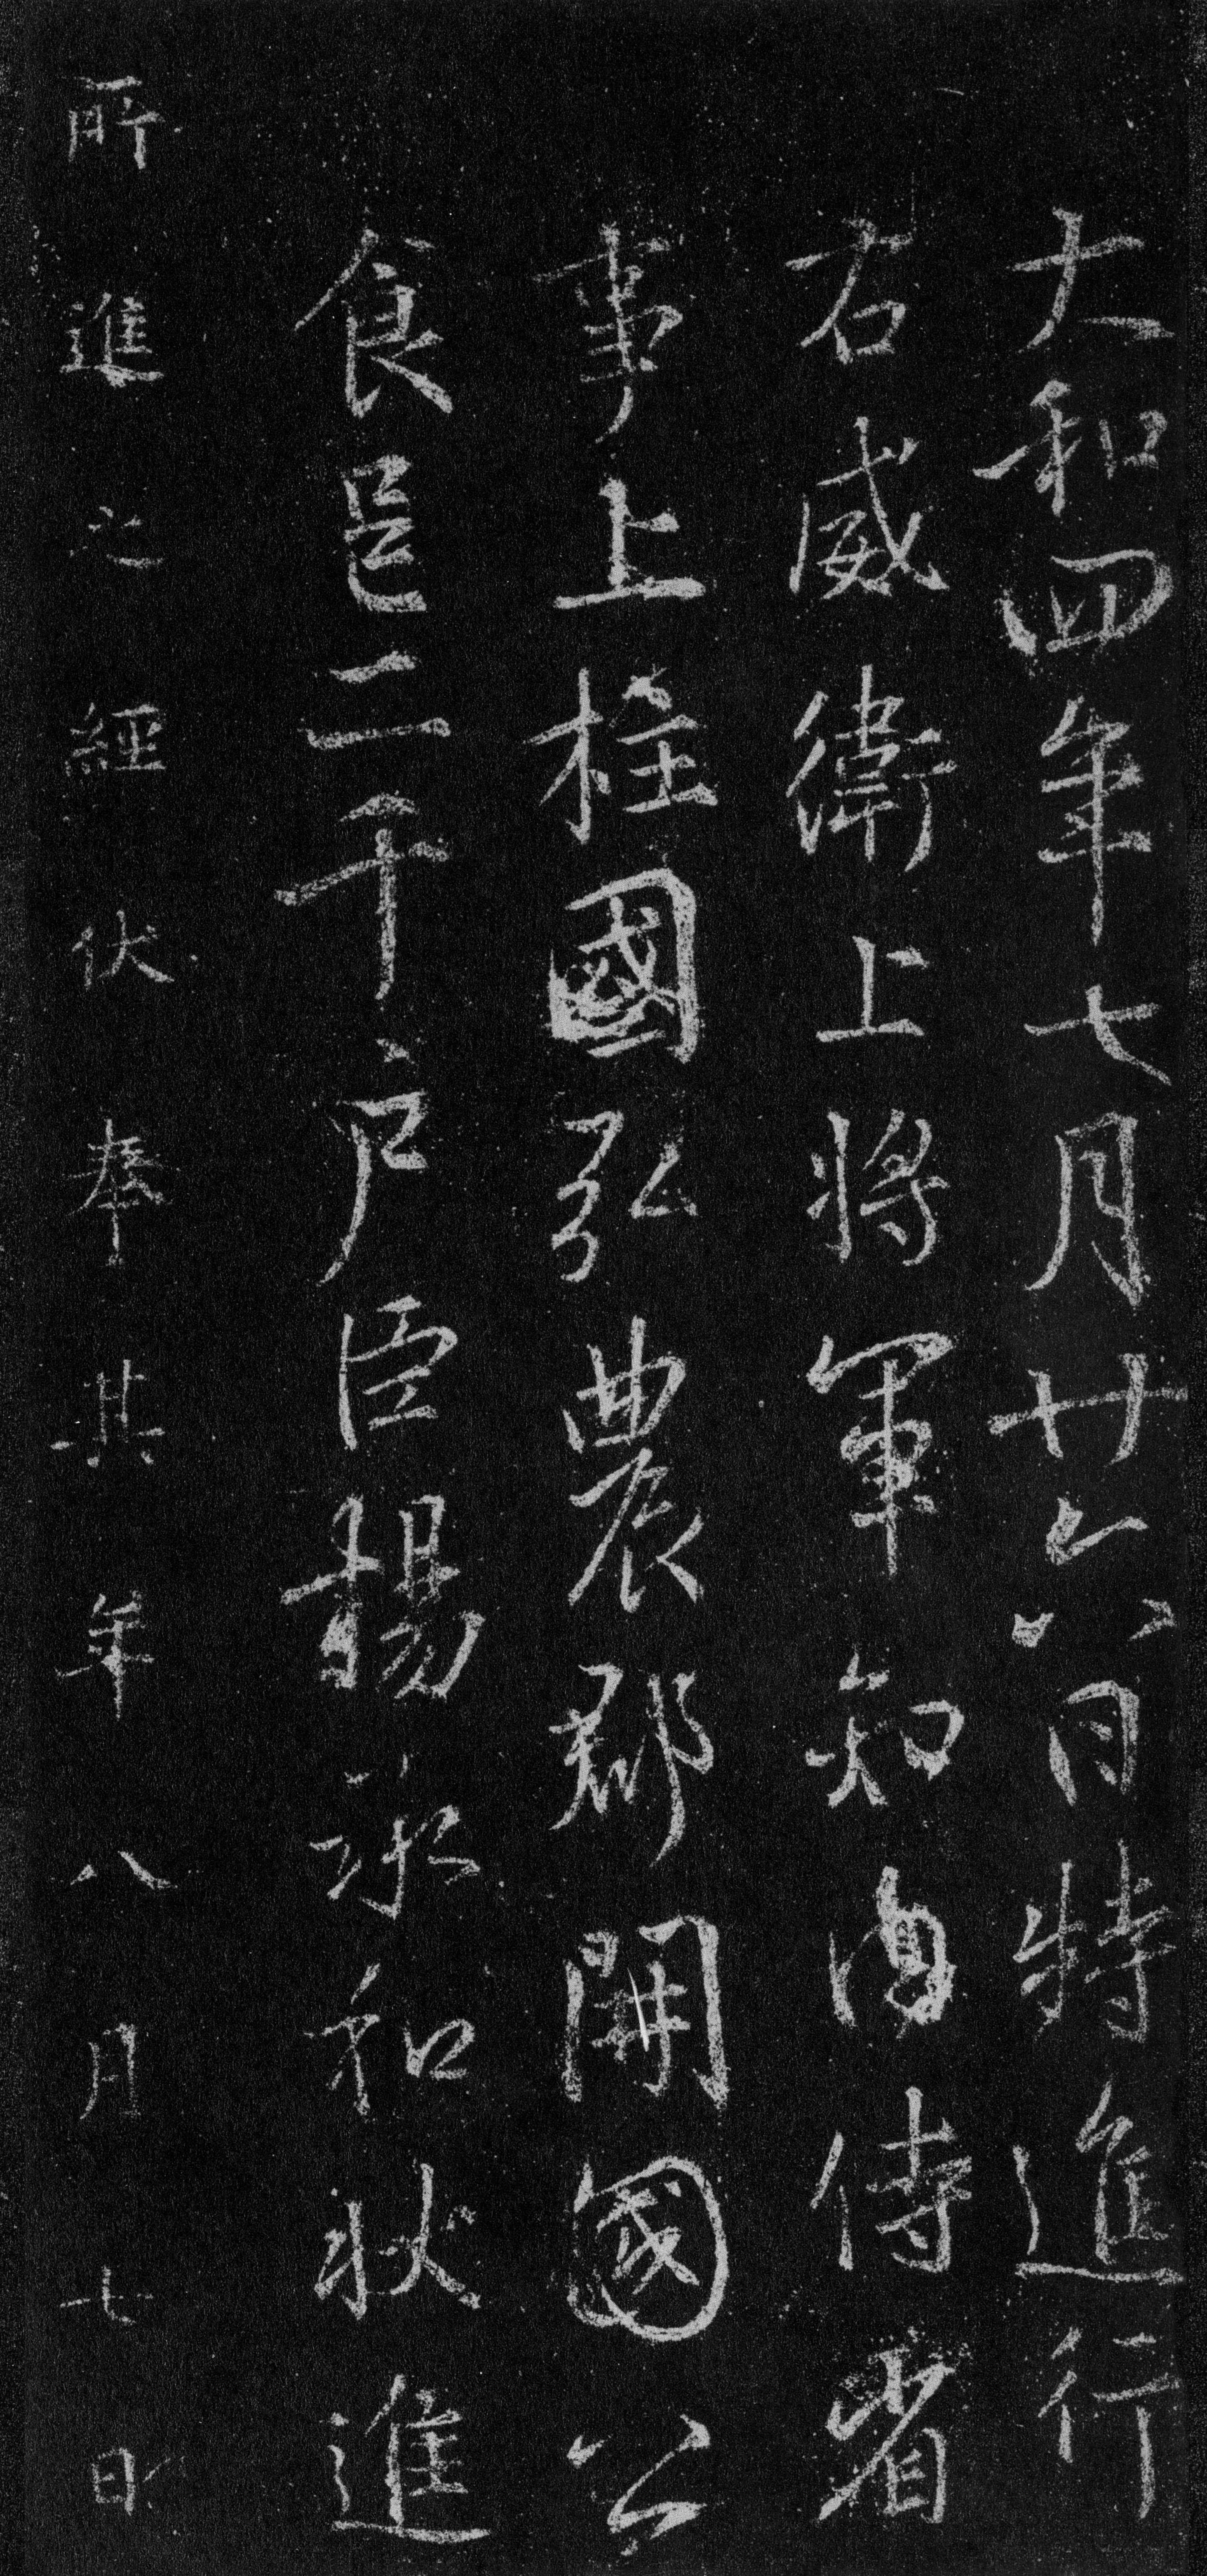 大和四年七月廿六日特進行
右威衛上將軍知內侍省
事上柱國弘農郡開國公
食邑二千户臣楊承和狀進
所進之經伏奉其年八月七日